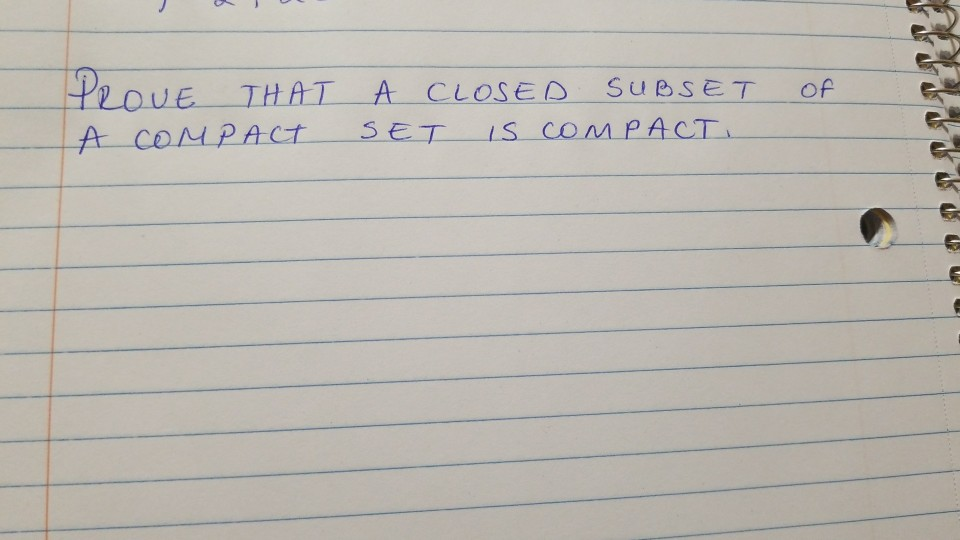 PROVE THAT A CLOSED SUBSET OF
A COMPACT SET IS COMPACT.